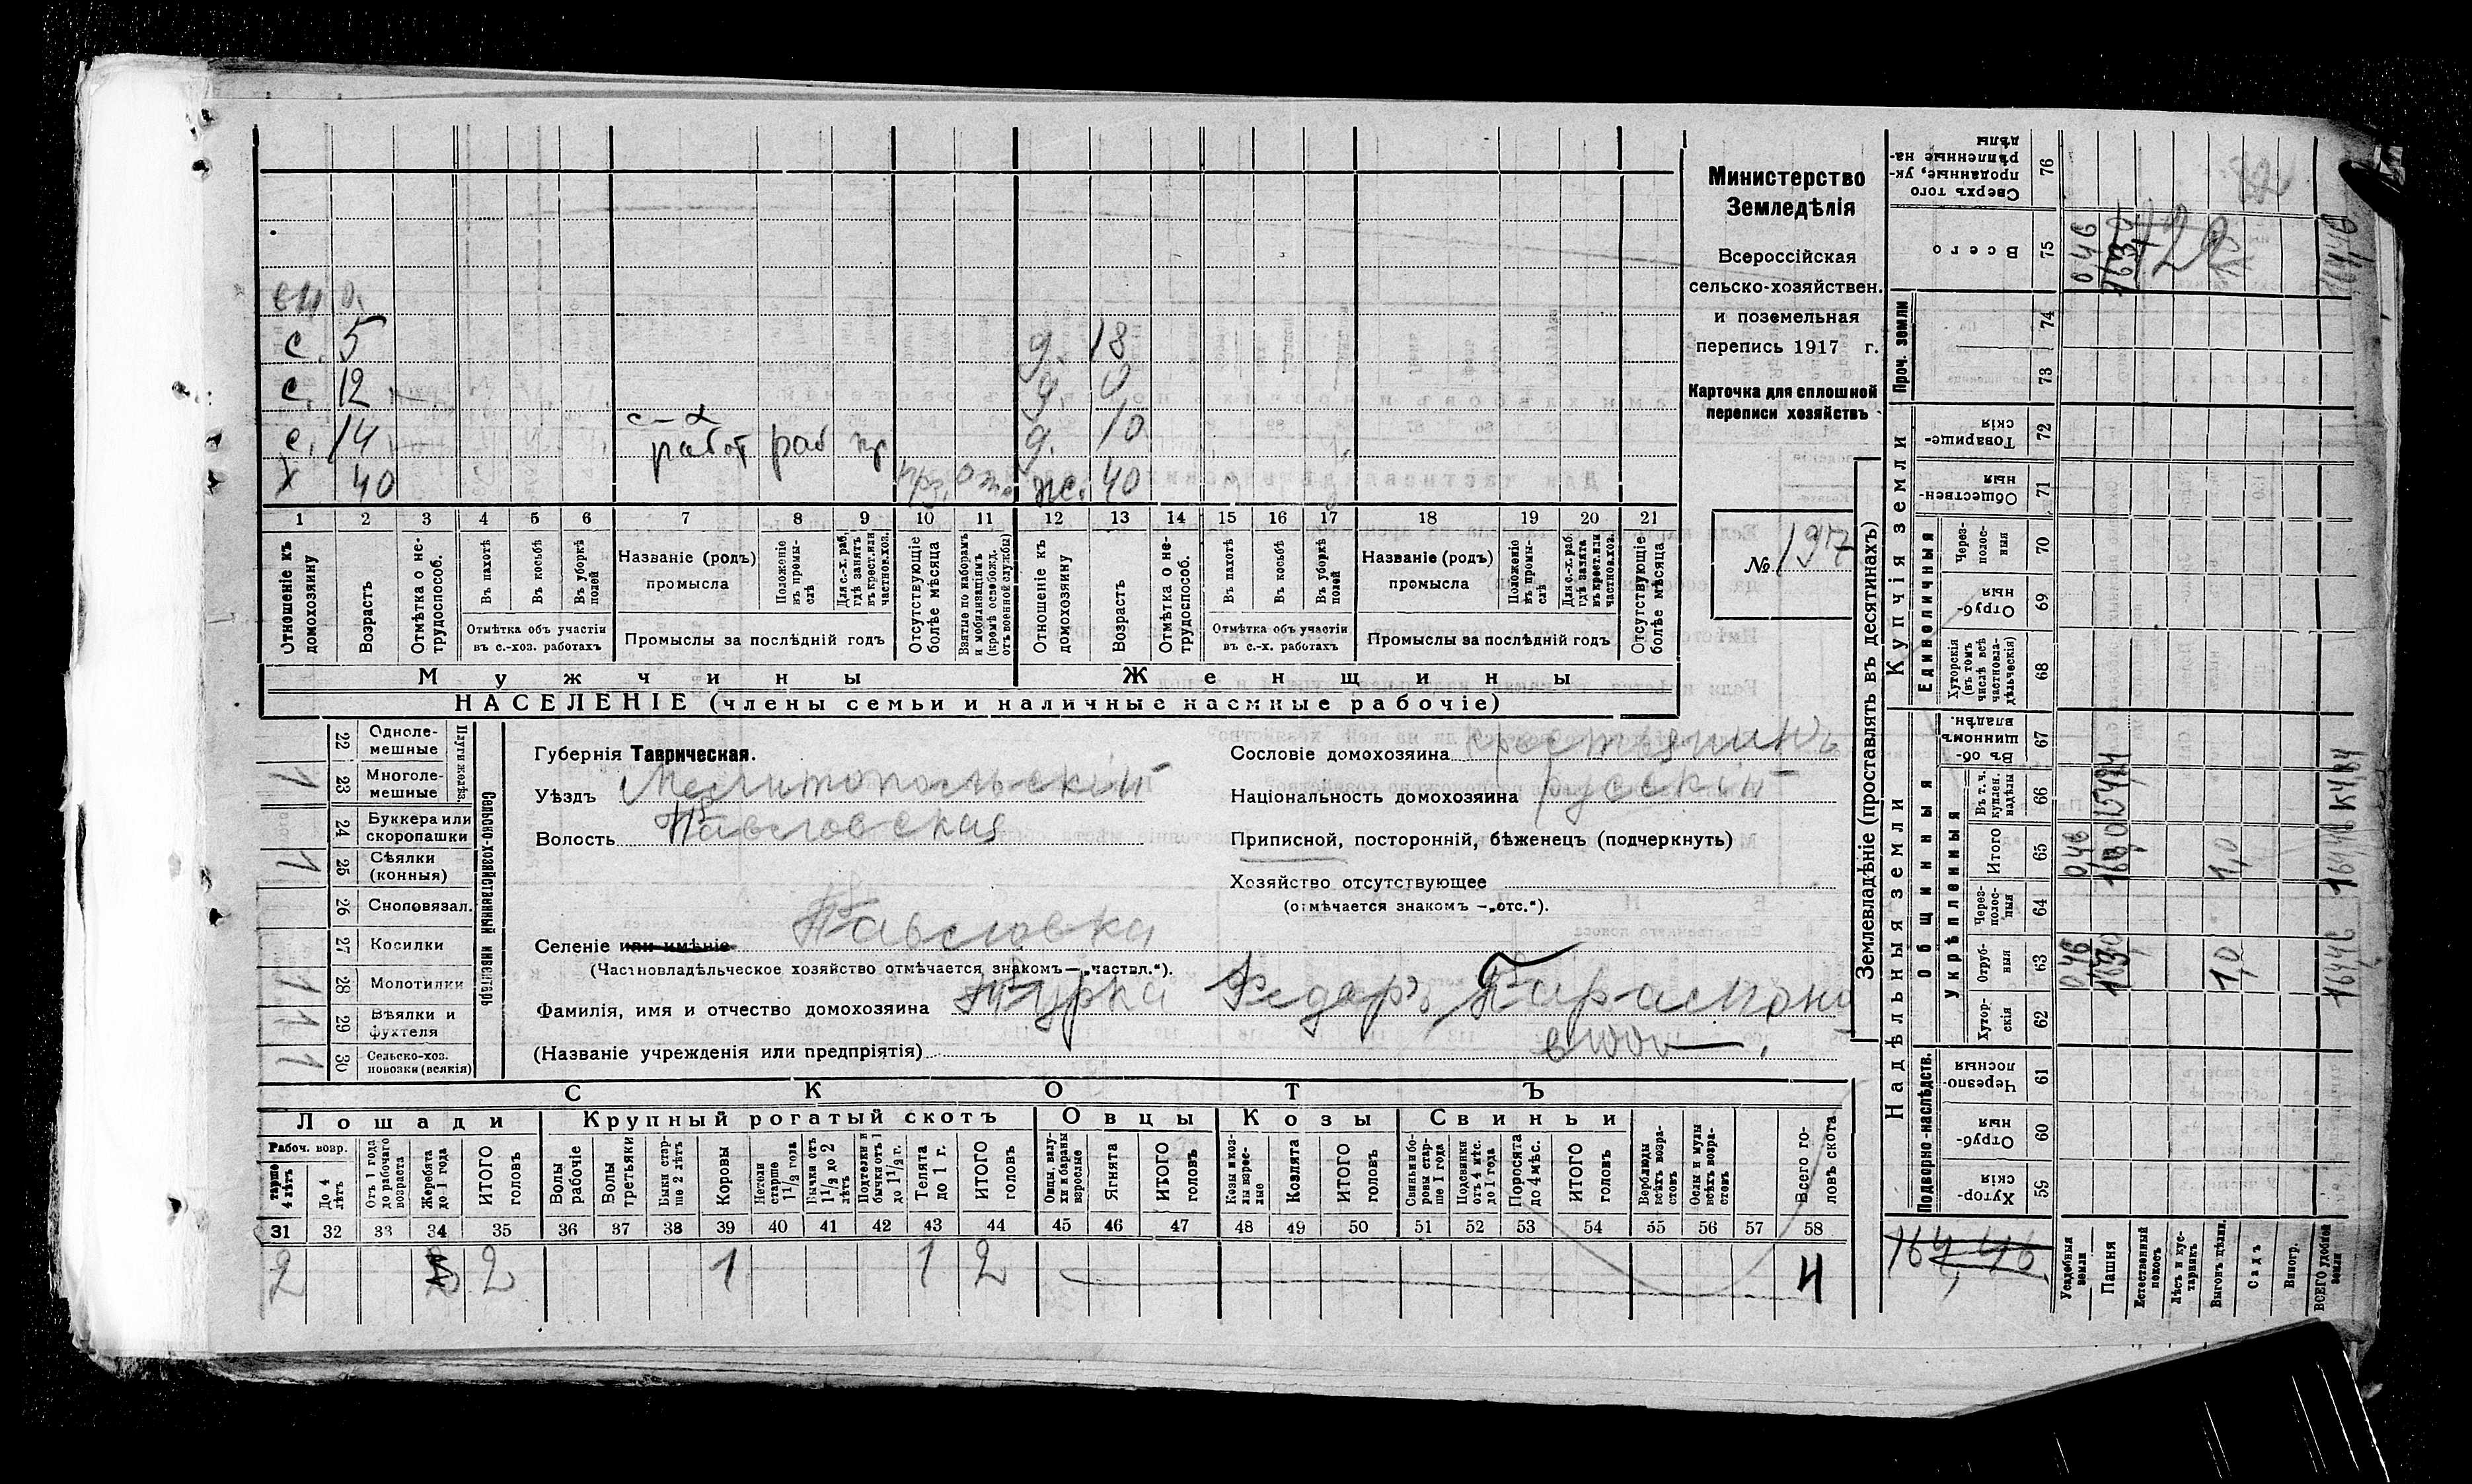 Министерство
Земледѣлія
Всероссійская
сельско-хозяйствен.
и поземельная
перепись 1917 г.
Карточка для сплошной
переписи хозяйствъ
№ 197
с. 5 д. 18
с. 12 д.
с. 14 работ раб д. 10
Х 40 ж. 40
1 2 3 4 5 6 7 8 9 10 11 12 13 14 15 16 17 18 19 20 21
Отношеніе къ домохозяину
Возрастъ
Отмѣтка о не-трудоспособ.
Въ пахотѣ
Въ косьбѣ
Въ уборкѣ полей
Отмѣтка объ участіи въ с.-хоз. работахъ
Названіе (родъ) промысла
Положеніе въ промы-слѣ
Для с.-х. раб. гдѣ занятъ въ крест. или частнов. хоз.
Промыслы за послѣдній годъ
Отсутствующіе болѣе мѣсяца
Взятые по наборамъ и мобилизаціямъ (кромѣ освобожд. отъ военной службы)
Отношеніе къ домохозяину
Возрастъ
Отмѣтка о не-трудоспособ.
Въ пахотѣ
Въ косьбѣ
Въ уборкѣ полей
Отмѣтка объ участіи въ с.-х. работахъ
Названіе (родъ) промысла
Положеніе въ промы-слѣ
Для с.-х. раб. гдѣ занята въ крест. или частнов. хоз.
Промыслы за послѣдній годъ
Отсутствующіе болѣе мѣсяца
Мужчины Женщины
НАСЕЛЕНІЕ (члены семьи и наличные наемные рабочіе)
Сельско-хозяйственный инвентарь
22 Одноле-мешные
23 Многоле-мешные 1
24 Буккера или скоропашки
25 Сѣялки (конныя) 1
26 Сноповязал.
27 Косилки
28 Молотилки 1
29 Вѣялки и фухтеля 1
30 Сельско-хоз. повозки (всякія) 1
Губернія Таврическая.
Уѣздъ Мелитопольскій
Волость Павловская
Селеніе или имѣніе Павловка
(Частновладѣльческое хозяйство отмѣчается знакомъ—„частвл.“).
Фамилія, имя и отчество домохозяина Турка Федоръ
(Названіе учрежденія или предпріятія)
Сословіе домохозяина крестьянинъ
Національность домохозяина русскій
Приписной, посторонній, бѣженецъ (подчеркнуть)
Хозяйство отсутствующее
(отмѣчается знакомъ —„отс.“).
СКОТЪ
Лошади Крупный рогатый скотъ Овцы Козы Свиньи
Рабоч. возр.
старше 4 лѣтъ
До 4 лѣтъ
Отъ 1 года до рабочаго возраста
Жеребята до 1 года
ИТОГО головъ
Волы рабочіе
Волы третьяки
Быки стар-ше 2 лѣтъ
Коровы
Нетели старше 1½ года
Бычки отъ 1½ до 2 лѣтъ
Подтелки и бычки отъ 1 до 1½ г.
Телята до 1 г.
ИТОГО головъ
Овцы, валу-хи и бараны взрослые
Ягнята
ИТОГО головъ
Козы и коз-лы взрос-лые
Козлята
ИТОГО головъ
Свиньи и бо-ровы стар-ше 1 года
Подсвинки отъ 4 мѣс. до 1 года
Поросята до 4 мѣс.
ИТОГО головъ
Верблюды всѣхъ возра-стовъ
Ослы и мулы всѣхъ возра-стовъ
Всего го-ловъ скота
31 32 33 34 35 36 37 38 39 40 41 42 43 44 45 46 47 48 49 50 51 52 53 54 55 56 57 58
2 2 1 1 2 4
Землевладѣніе (проставлять въ десятинахъ)
Надѣльныя земли Купчія земли Проч. земли
Подворно-наслѣдств.
Общинныя
Укрѣпленныя
Единоличныя
Хутор-скія 59
Отруб-ныя 60
Черезпо-лосныя 61
Хутор-скія 62
Отруб-ныя 63
Через-полос-ныя 64
Итого 65
Въ т. ч. куплен. надѣлы 66
Въ об-щинномъ владѣн. 67
Хуторскія (въ томъ числѣ всѣ частновла-дѣльческія) 68
Отруб-ныя 69
Через-полос-ныя 70
Обществен-ныя 71
Товарище-скія 72
73
74
Всего 75
Сверхъ того проданные, ук-рѣпленные на-дѣлы 76
Усадебныя земли 0,46 0,46 0 46
Пашня
Естественный покосъ
Лѣсъ и кус-тарникъ
Выгонъ цѣлин. 1,0 1,0
Садъ
Виногр.
ВСЕГО удобной земли 16446 16446